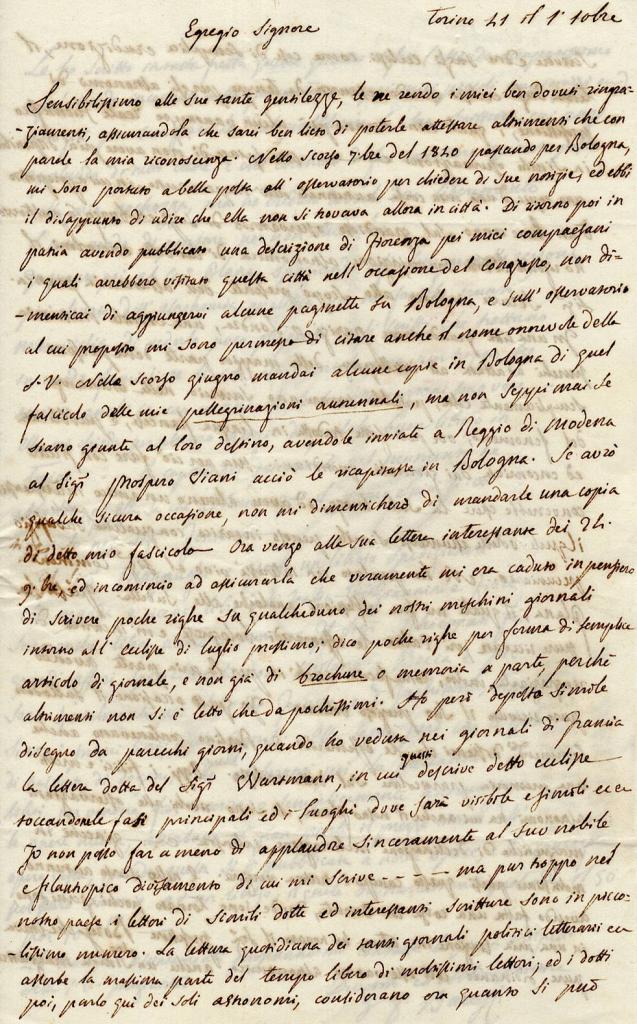 Torino 41 il 1° 10bre
Egregio Signore
Sensibilissimo alle sue tante gentilezze, le ne rendo i miei ben dovuti ringra-
-ziamenti, assicurandola che sarei ben lieto di poterle attestare altrimenti che con
parole la mia riconoscenza. Nello scorso 7.bre del 1840 passando per Bologna,
mi sono portato a bella posta all' osservatorio per chiedere di sue notizie, ed ebbi
il disappunto di udire che ella non si trovava allora in città. Di ritorno poi in
patria avendo pubblicato una descrizione di Fiorenza pei miei compaesani
i quali avrebbero visitato questa città nell' occasione del congresso, non di-
-menticai di aggiungervi alcune paginette su Bologna, e sull' osservatorio
al cui proposito mi sono permesso di citare anche il nome onorevole della
S. V. Nello scorso giugno mandai alcune copie in Bologna di quel
fascicolo delle mie pellegrinazioni autunnali, ma non seppi mai se
siano giunte al loro destino, avendole inviate a Reggio di Modena
al Sigr Prospero Viani acciò le ricapitasse in Bologna. Se avrò
qualche sicura occasione, non mi dimenticherò di mandarle una copia
di detto mio fascicolo. Ora vengo alla sua lettera interessante dei 24.
9.bre, ed incomincio ad assicurarla che veramente mi era caduto in pensiero
di scrivere poche righe su qualcheduno dei nostri meschini giornali
intorno all' eclisse di luglio prossimo; dico poche righe per forma di semplice
articolo di giornale, e non già di brochure o memoria a parte, perchè
altrimenti non si è letto che da pochissimi. Ho però deposto simile
disegno da parecchi giorni, quando ho veduta nei giornali di Francia
la lettera dotta del Sigr Wartmann, in cui questi descrive detto eclisse
toccandone le fasi principali ed i luoghi dove sarà visibile e simili ecc
Io non posso far a meno di applaudire sinceramente al suo nobile
e filantropico divisamento di cui mi scrive - - - - ma pur troppo nel
nostro paese i lettori di simili dotte ed interessanti scritture sono in picco-
-lissimo numero. La lettura quotidiana dei tanti giornali politici letterari ecc
assorbe la massima parte del tempo libero di moltissimi lettori; ed i dotti
poi, parlo qui dei soli astronomi, considerano ora quanto si può